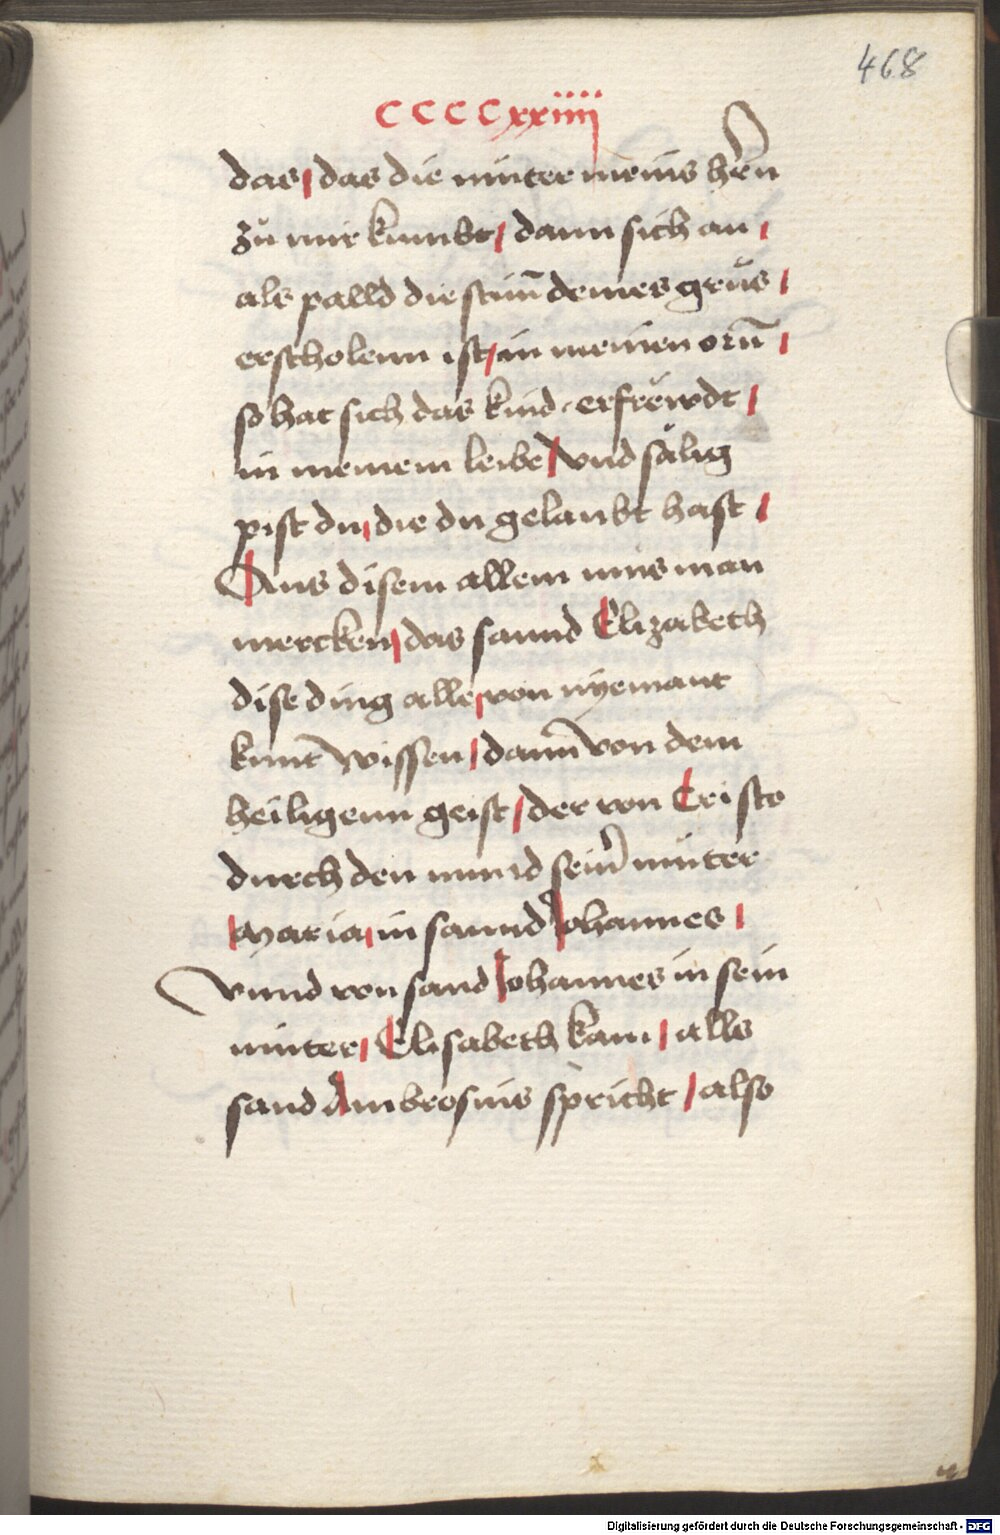 468
CCCCxxiiii
das / das die muter meins herñ
zu mir kumbt / dann sich an /
als palld die stim̃ deines grus /
erscholenn ist / in meinen orñ /
so hat sich das kind erfrewdt /
in meinem leibe / vnd sälig
pist du / die du gelaubt hast /
Aus disem allem mus man
mercken / das sannd Elizabeth
dise ding alle / von nyemant
kunt wissen / dann̄ von dem
heiligenn geist / der von Cristo
durch den mund sein̄ muter
Maria / in sannd Johannes /
vnnd von sand Johannes in sein
muter / Elisabeth kam / alls
sand Ambrosius spricht / also
Digitalisierung gefördert durch die Deutsche Forschungsgemeinschaft - DFG